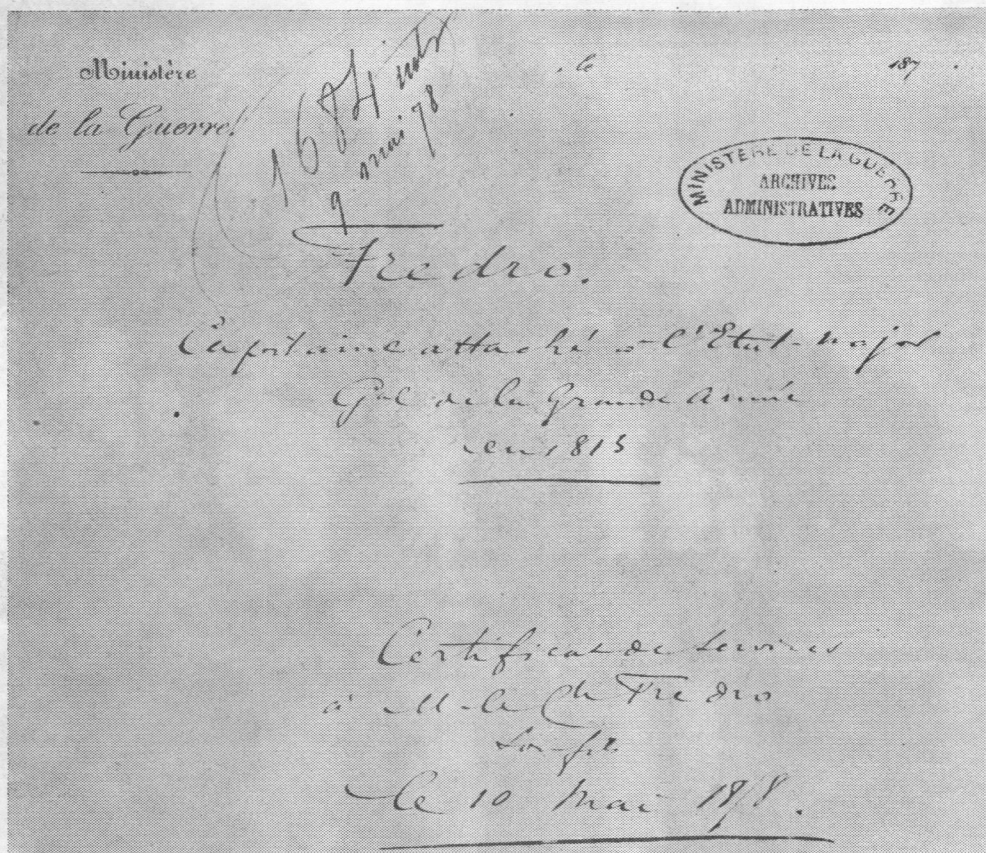 Ministère
de la Guerre.
, le 187 .
1684 
9 mai 78
MINISTÈRE DE LA GUERRE
ARCHIVES
ADMINISTRATIVES
Fredro.
Capitaine attaché à l'Etat-major
Gal de la Grande Armée
en 1813
Certificat de services
à M. le Cte Fredro
son fils
le 10 Mai 1878.